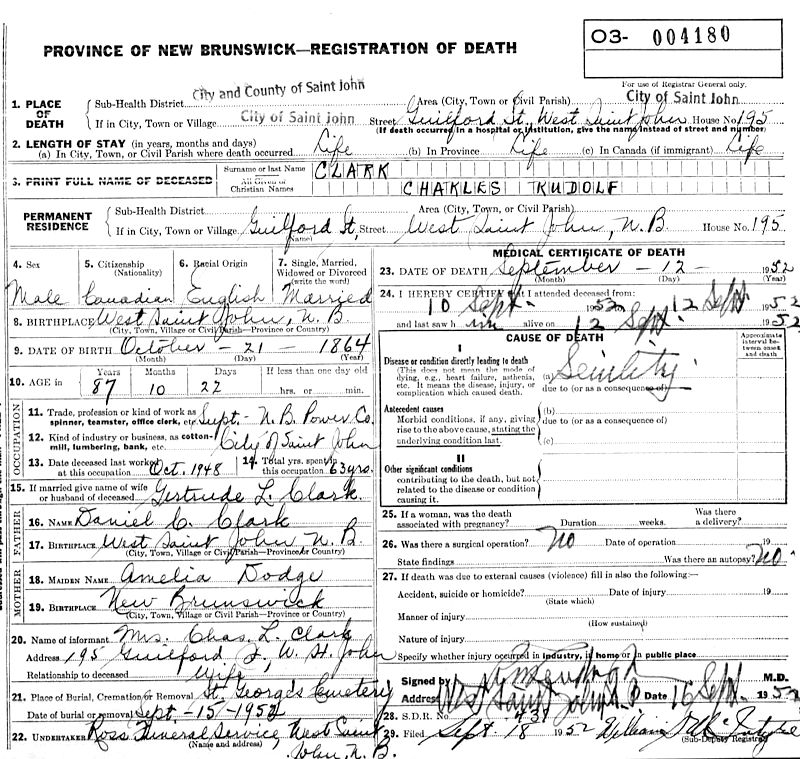 O3- 004180
PROVINCE OF NEW BRUNSWICK—REGISTRATION OF DEATH
For use of Registrar General only.
1. PLACE OF DEATH
Sub-Health District City and County of Saint John Area (City, Town or Civil Parish) City of Saint John
If in City, Town or Village City of Saint John Street Guilford St., West Saint John House No. 195
(If death occurred in a hospital or institution, give the name instead of street and number)
2. LENGTH OF STAY (in years, months and days)
(a) In City, Town, or Civil Parish where death occurred Life (b) In Province Life (c) In Canada (if immigrant) Life
3. PRINT FULL NAME OF DECEASED
Surname or last Name CLARK
All Given or Christian Names CHARLES RUDOLF
PERMANENT RESIDENCE
Sub-Health District Area (City, Town, or Civil Parish)
If in City, Town or Village Guilford St, Street West Saint John, N.B House No. 195
(Name)
4. Sex 5. Citizenship (Nationality) 6. Racial Origin 7. Single, Married, Widowed or Divorced (write the word)
Male Canadian English Married
8. BIRTHPLACE West Saint John, N.B
(City, Town, Village or Civil Parish—Province or Country)
9. DATE OF BIRTH October - 21 - 1864
(Month) (Day) (Year)
10. AGE in Years Months Days If less than one day old
87 10 22 hrs. or min.
OCCUPATION
11. Trade, profession or kind of work as spinner, teamster, office clerk, etc. Supt. - N.B. Power Co.
12. Kind of industry or business, as cotton-mill, lumbering, bank, etc. City of Saint John
13. Date deceased last worked at this occupation Oct. 1948 14. Total yrs. spent in this occupation 63 yrs.
15. If married give name of wife or husband of deceased Gertrude L. Clark
FATHER
16. NAME Daniel C. Clark
17. BIRTHPLACE West Saint John N.B.
(City, Town, Village or Civil Parish—Province or Country)
MOTHER
18. MAIDEN NAME Amelia Dodge
19. BIRTHPLACE New Brunswick
(City, Town, Village or Civil Parish—Province or Country)
20. Name of informant Mrs. Chas. L. Clark
Address 195 Guilford St. W. St. John
Relationship to deceased Wife
21. Place of Burial, Cremation or Removal St. George's Cemetery
Date of burial or removal Sept. - 15 - 1952
22. UNDERTAKER Ross Funeral Service, West Saint John, N.B.
(Name and address)
MEDICAL CERTIFICATE OF DEATH
23. DATE OF DEATH September - 12 - 1952
(Month) (Day) (Year)
24. I HEREBY CERTIFY that I attended deceased from:
10 Sept. 1952 12 Sept 1952
and last saw him alive on 12 Sept 1952
CAUSE OF DEATH
Approximate interval between onset and death
I
Disease or condition directly leading to death
(This does not mean the mode of dying, e.g., heart failure, asthenia, etc. It means the disease, injury, or complication which caused death.
(a) Senility
due to (or as a consequence of)
Antecedent causes
Morbid conditions, if any, giving rise to the above cause, stating the underlying condition last.
(b)
due to (or as a consequence of)
(c)
II
Other significant conditions
contributing to the death, but not related to the disease or condition causing it.
25. If a woman, was the death associated with pregnancy? Duration weeks. Was there a delivery?
26. Was there a surgical operation? No Date of operation 19
State findings Was there an autopsy? No
27. If death was due to external causes (violence) fill in also the following:—
Accident, suicide or homicide? Date of injury 19
(State which)
Manner of injury
(How sustained)
Nature of injury
Specify whether injury occurred in industry, in home or in public place
Signed by M.D.
Address West Saint John Date 16 Sept. 1952
28. S.D.R. No. 431
29. Filed Sept. 18 1952 William
(Sub-Deputy Registrar)